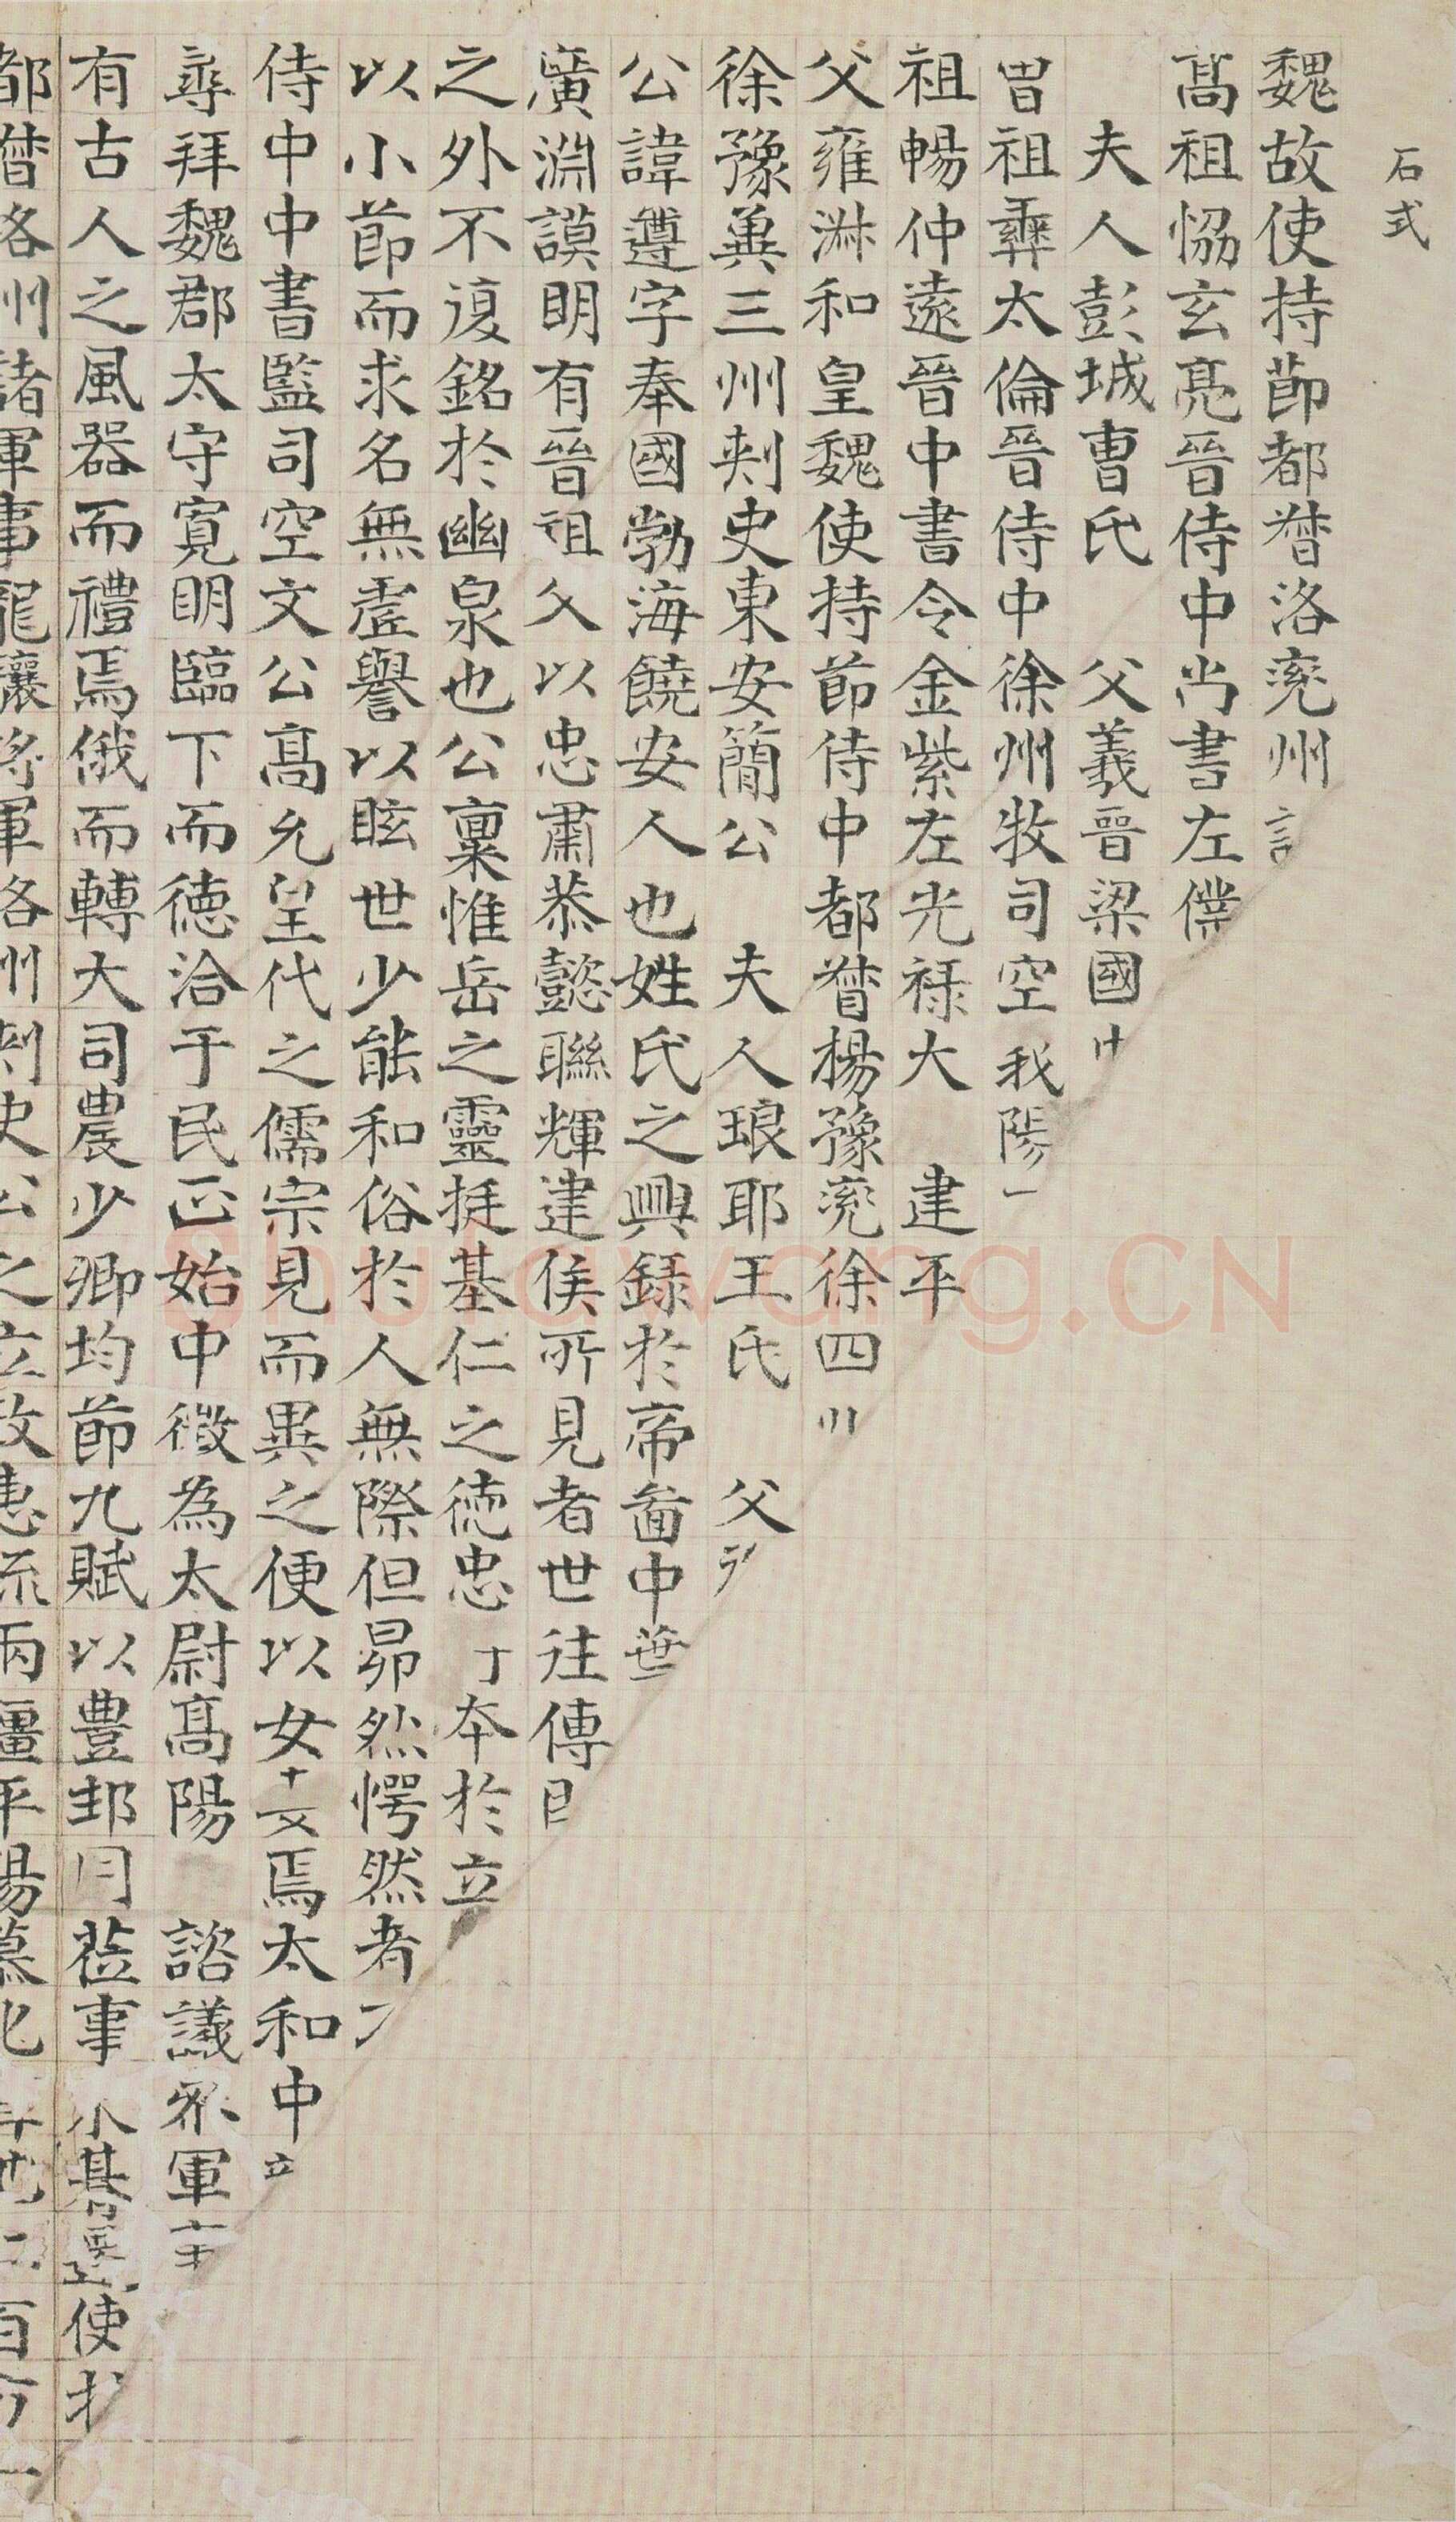 石式
魏故使持節都督洛兗州
高祖協玄亮晉侍中尚書左僕
夫人彭城曹氏 父義晉梁國中
曾祖彝太倫晉侍中徐州牧司空我陽
祖暢仲遠晉中書令金紫左光祿大 建平
父雍淋和皇魏使持節侍中都督楊豫兗徐四
徐豫兾三州刺史東安簡公 夫人琅耶王氏 父
公諱遵字奉國勃海饒安人也姓氏之興錄於帝啚中葉
廣淵謨明有晉祖父以忠肅恭懿聯輝建侯所見者世往傳
之外不復銘於幽泉也公稟惟岳之靈挺基仁之德忠 本於立
以小節而求名無虛譽以眩世少能和俗於人無際但昴然愕然者
侍中中書監司空文公高允皇代之儒宗見而異之便以女 焉太和中
尋拜魏郡太守寬明臨下而德洽于民正始中徵為太尉高陽 諮議參軍
有古人之風器而禮焉俄而轉大司農少卿均節九賦以豊邦 莅事 朞 使
都督洛州諸軍事龍驤將軍洛州刺史公之立政惠流兩疆平陽慕化 百
shufawang.CN